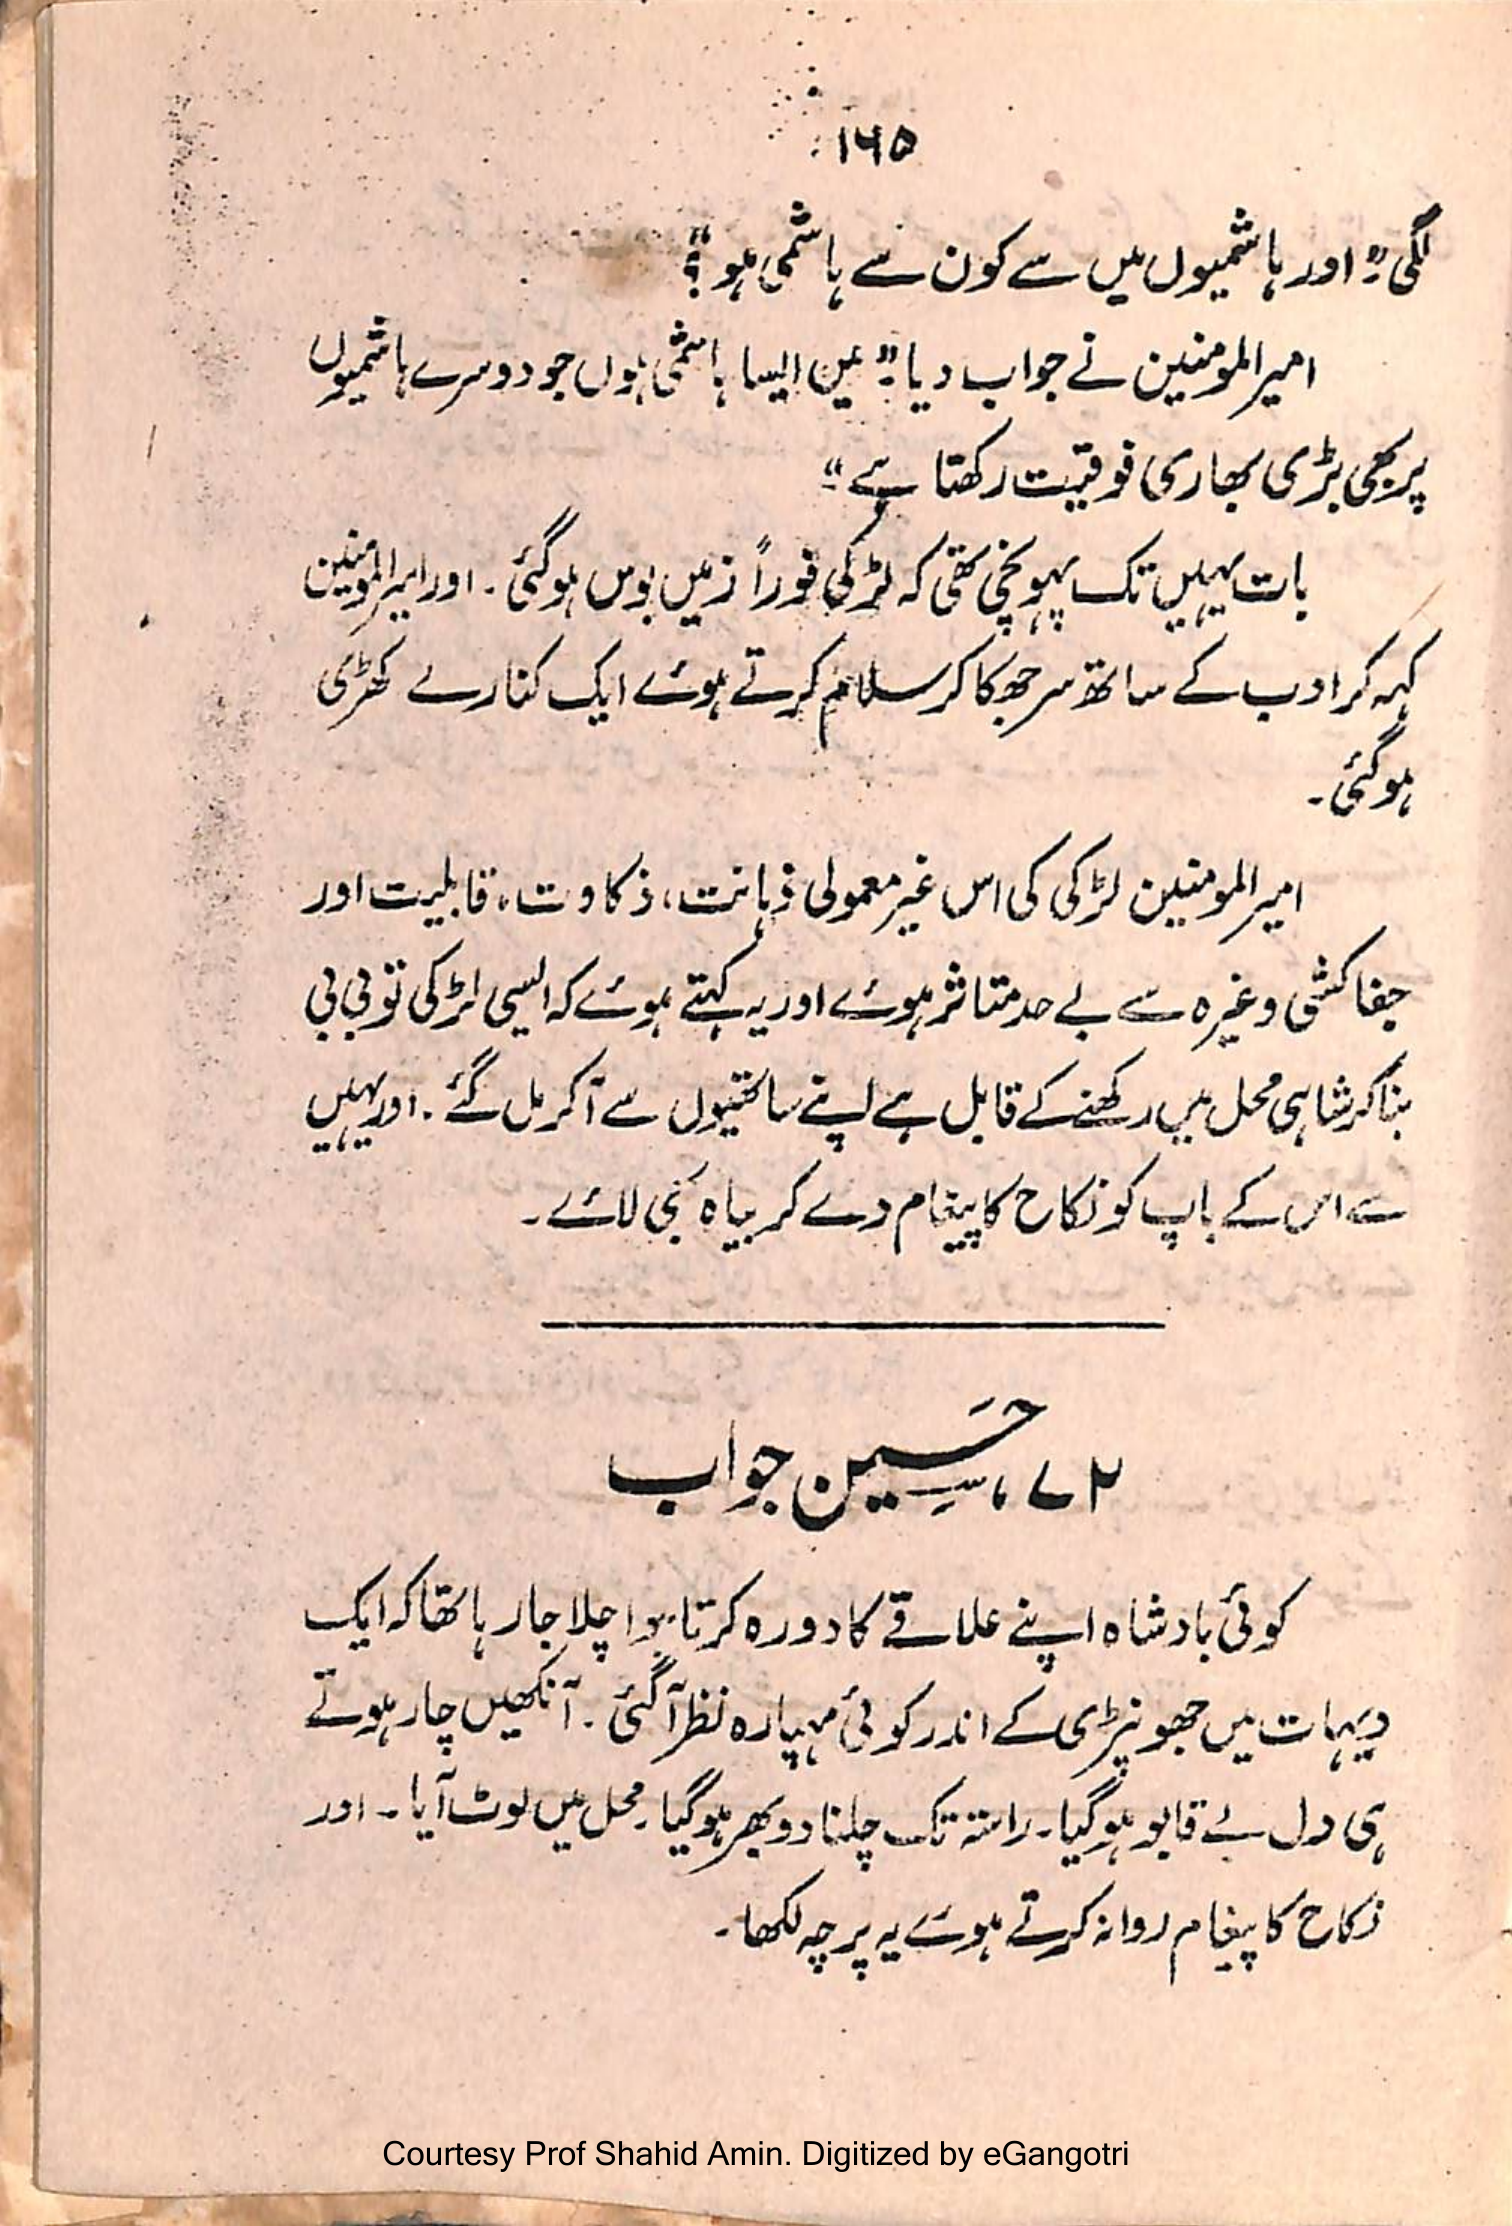 ۱۶۵
لگی:" اور ہاشمیوں میں سے کون سے ہاشمی ہو؟"
امیرالمومنین نے جواب دیا:" میں ایسا ہاشمی ہوں جو دوسرے ہاشمیوں
پر بھی بڑی بھاری فوقیت رکھتا ہے۔"
بات یہیں تک پہونچی تھی کہ لڑکی فوراً زمیں بوس ہوگئی۔ اور امیرالمومنین
کہہ کر ادب کے ساتھ سر جھکا کر سلام کرتے ہوئے ایک کنارے کھڑی
ہوگئی۔
امیرالمومنین لڑکی کی اس غیر معمولی ذہانت، ذکاوت، قابلیت اور
جفاکشی وغیرہ سے بے حد متاثر ہوئے اور یہ کہتے ہوئے کہ ایسی لڑکی تو بی بی
بنا کر شاہی محل میں رکھنے کے قابل ہے اپنے ساتھیوں سے آکر مل گئے۔ اور یہیں
سے اس کے باپ کو نکاح کا پیغام دے کر بیاہ بھی لائے۔
۷۲، حَسِین جواب
کوئی بادشاہ اپنے علاقے کا دورہ کرتا ہوا چلا جارہا تھا کہ ایک
دیہات میں جھونپڑی کے اندر کوئی مہپارہ نظر آگئی۔ آنکھیں چار ہوتے
ہی دل بے قابو ہوگیا۔ راستہ تک چلنا دوبھر ہوگیا۔ محل میں لوٹ آیا۔ اور
نکاح کا پیغام روانہ کرتے ہوئے یہ پرچہ لکھا۔
Courtesy Prof Shahid Amin. Digitized by eGangotri